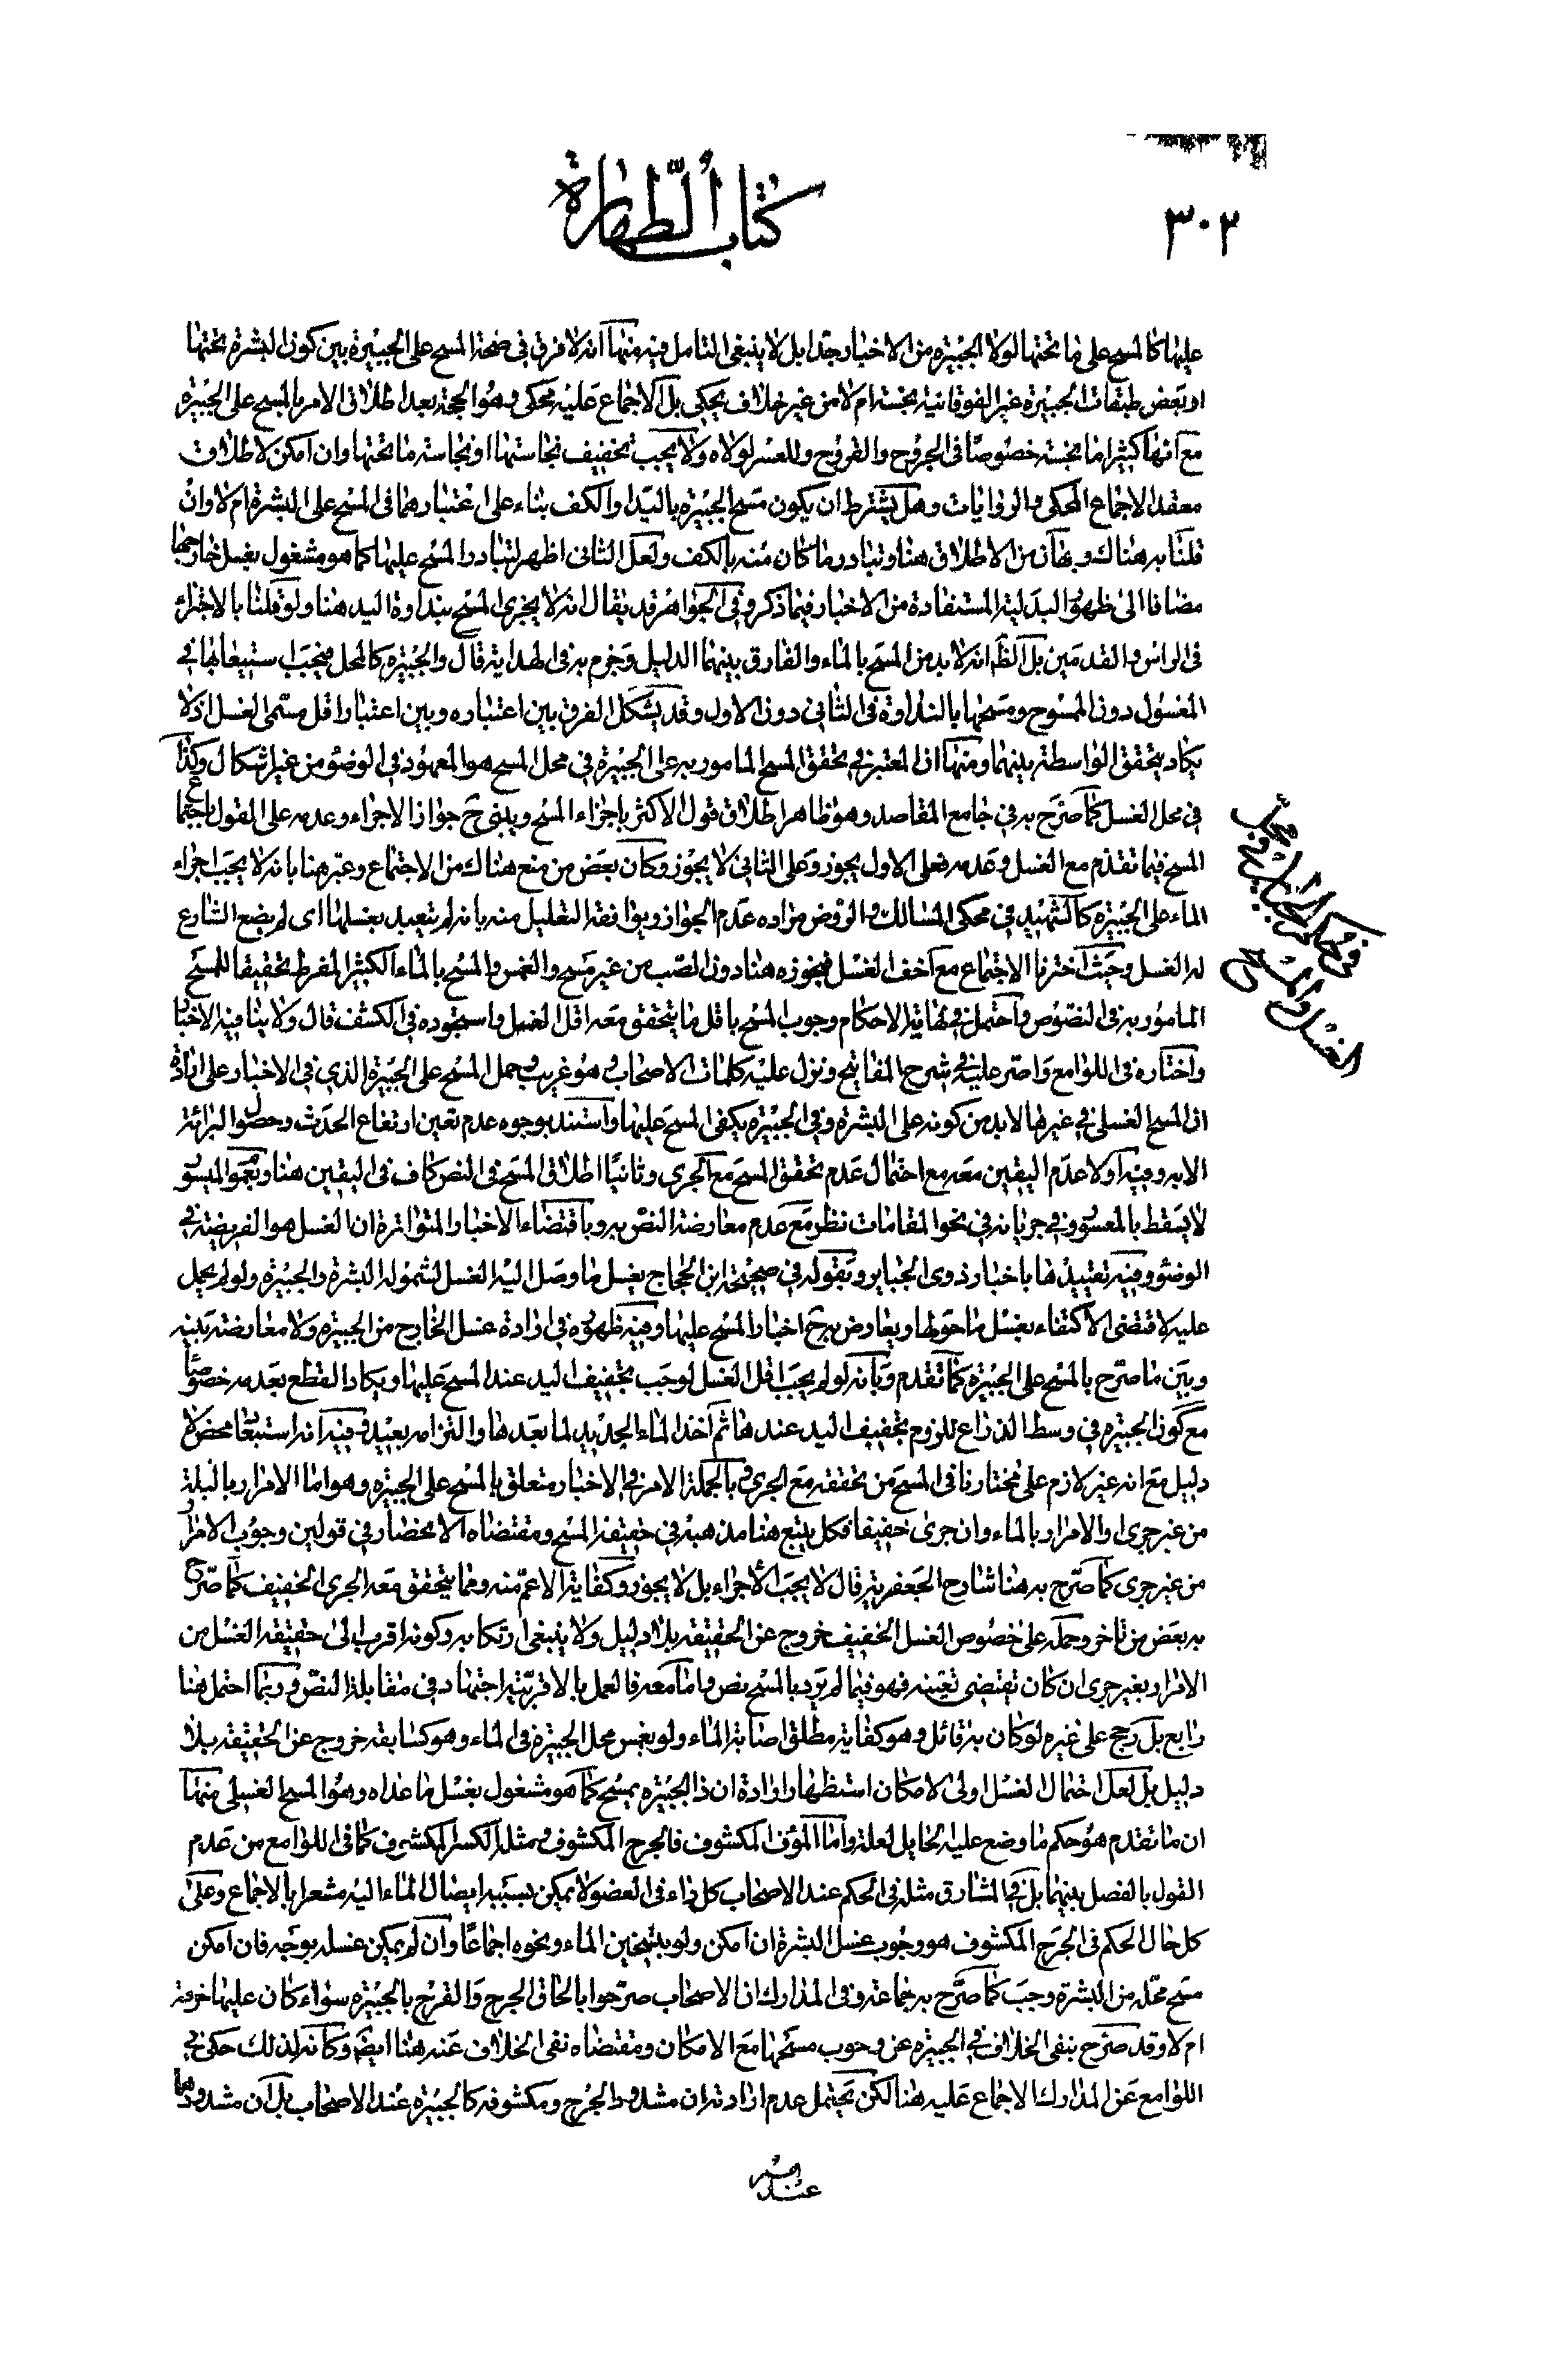 ٣٠٢
كتاب الطهارة
عليها كالمسح على ما تحتها لولا الجبيرة من الاخبار جدا بل لا ينبغي التامل فيه منها انه لا فرق في صحة المسح على الجبيرة بين كون البشرة تحتها
او بعض طبقات الجبيرة غير الفوقانية نجسة ام لا من غير خلاف يحكى بل الاجماع عليه محكى وهو الحجة بعد اطلاق الامر بالمسح على الجبيرة
مع انها كثيرا ما نجسة خصوصا في الجروح والقروح وللعسر لولاه ولا يجب تخفيف نجاستها او نجاسة ما تحتها وان امكن لاطلاق
معقد الاجماع المحكى والروايات وهل يشترط ان يكون مسح الجبيرة باليد او الكف بناء على اعتبارهما في المسح على البشرة ام لا وان
قلنا به هناك وجهان من الاطلاق هنا وتبادر ما كان منه بالكف ولعل الثانى اظهر لتبادر المسح عليها كما هو مشغول بغسل خارجها
مضافا الى ظهور البدلية المستفادة من الاخبار فيما ذكر وفي الجواهر قد يقال انه لا يجزى المسح بنداوة اليد هنا ولو قلنا بالاجتزاء
فى الراس والقدمين بل الظ انه لا بد من المسح بالماء والفارق بينهما الدليل وجزم به فى الهداية قال والجبيرة كالمحل فيجب استيعابها في
المغسول دون الممسوح ومسحها بالنداوة في الثاني دون الاول وقد يشكل الفرق بين اعتباره وبين اعتبار اقل مسمى الغسل اذ لا
يكاد يتحقق الواسطة بينهما ومنها ان المعتبر في تحقق المسح المامور به على الجبيرة في محل المسح هو المعهود في الوضوء من غير اشكال وكذا
في محل الغسل كما صرح به في جامع المقاصد وهو ظاهر اطلاق قول الاكثر باجزاء المسح ويبنى ح جواز الاجزاء وعدمه على القول باجتماع
المسح فيما تقدم مع الغسل وعدمه فعلى الاول يجوز وعلى الثاني لا يجوز وكان بعض من منع هناك من الاجتماع وعبر هنا بانه لا يجب اجراء
الماء على الجبيرة كالشهيد في محكى المسالك والروض مراده عدم الجواز ويوافقه التعليل منه بانه لم يتعبد بغسلها اى لم يضع الشارع
له الغسل وحيث اخترنا الاجتماع مع اخف الغسل فيجوزه هنا دون الصب من غير مسح والغمس والمسح بالماء الكثير المفرط تحقيقا للمسح
المامور به في النصوص واحتمل في نهاية الاحكام وجوب المسح باقل ما يتحقق معه اقل الغسل واستجوده في الكشف قال ولا ينافيه الاخبار
واختاره فى اللوامع واصر عليه في شرح المفاتيح ونزل عليه كلمات الاصحاب وهو غريب وحمل المسح على الجبيرة الذي في الاخبار على افادة
ان المسح الغسلى في غيرها لا بد من كونه على البشرة وفي الجبيرة يكفى المسح عليها واستند بوجوه عدم تعين ارتفاع الحدث وحصول البرائة
الا به وفيه اولا عدم اليقين معه مع احتمال عدم تحقق المسح مع الجري وثانيا اطلاق المسح في النص كاف في اليقين هنا وبعموم الميسور
لا يسقط بالمعسور وفي جريانه في نحو المقامات نظر مع عدم معارضة النص به وباقتضاء الاخبار المتواترة ان الغسل هو الفريضة في
الوضوء وفيه تقييدها باخبار ذوى الجباير وبقوله في صحيحة ابن الحجاج يغسل ما وصل اليه الغسل لشموله البشرة والجبيرة ولو لم يحمل
عليه لاقتضى الاكتفاء بغسل ما حولها ويعارض به ح اخبار المسح عليها وفيه ظهوره في ارادة غسل الخارج من الجبيرة ولا معارضة بينه
وبين ما صرح بالمسح على الجبيرة كما تقدم وبانه لو لم يجب اقل الغسل لوجب تجفيف اليد عند المسح عليها ويكاد القطع بعدمه خصوصا
مع كون الجبيرة في وسط الذراع للزوم تجفيف اليد عندها ثم اخذ الماء الجديد لما بعدها والتزامه بعيد وفيه انه استبعاد محض لا
دليل مع انه غير لازم على مختارنا فى المسح من تحققه مع الجري وبالجملة الامر في الاخبار متعلق بالمسح على الجبيرة وهو اما الامرار بالبلة
من غير جرى او الامرار بالماء وان جرى خفيفا فكل يتبع هنا مذهبه في حقيقة المسح ومقتضاه الانحصار في قولين وجوب الامرار
من غير جرى كما صرح به هنا شارح الجعفرية قال لا يجب الاجراء بل لا يجوز وكفاية الاعم منه ومما يتحقق معه الجرى الخفيف كما صرح
به بعض من تاخر وحمله على خصوص الغسل الخفيف خروج عن الحقيقة بلا دليل ولا ينبغي ارتكابه وكونه اقرب الى حقيقة الغسل من
الامرار بغير جرى ان كان تقتضى تعينه فهو فيما لم يرد بالمسح نص واما معه فالعمل بالاقربية اجتهاد في مقابلة النص وربما احتمل هنا
رابع بل رجح على غيره لو كان به قائل وهو كفاية مطلق اصابة الماء ولو بغمس محل الجبيرة في الماء وهو كسابقه خروج عن الحقيقة بلا
دليل بل لعل احتمال الغسل اولى لامكان استظهار ارادة ان ذا الجبيرة يمسح كما هو مشغول بغسل ما عداه وهو المسح الغسلى منها
ان ما تقدم هو حكم ما وضع عليه الحايل لعلة واما المؤف المكشوف فالجرح المكشوف ومثله الكسر المكشوف كما في اللوامع من عدم
القول بالفصل بينهما بل في المشارق مثله في الحكم عند الاصحاب كل داء في العضو لا يمكن بسببه ايصال الماء اليه مشعرا بالاجماع وعلى
كل حال الحكم في الجرح المكشوف هو وجوب غسل البشرة ان امكن ولو بتسخين الماء ونحوه اجماعا وان لم يمكن غسله بوجه فان امكن
مسح محله من البشرة وجب كما صرح به جماعة وفي المدارك ان الاصحاب صرحوا بالحاق الجرح والقرح بالجبيرة سواء كان عليها خرقة
ام لا وقد صرح بنفى الخلاف في الجبيرة عن وجوب مسحها مع الامكان ومقتضاه نفى الخلاف عنه هنا ايضا وكانه لذلك حكى في
اللوامع عن المدارك الاجماع عليه هنا لكن يحتمل عدم ارادته ان مشدود الجرح ومكشوفه كالجبيرة عند الاصحاب بل ان مشدودهما